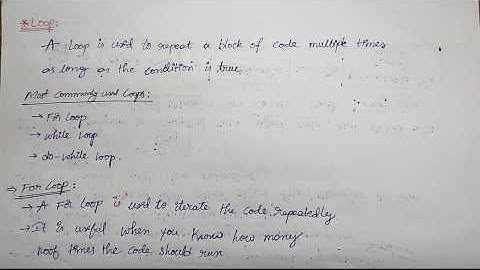 * Loop:
A Loop is used to repeat a block of code multiple times
as long as the condition is true.
Most commonly used Loops:
→ For Loop
→ while Loop
→ do-while Loop.
→ For Loop:
→ A For Loop is used to iterate the code repeatedly
→ It is useful when you know how many
no of times the code should run